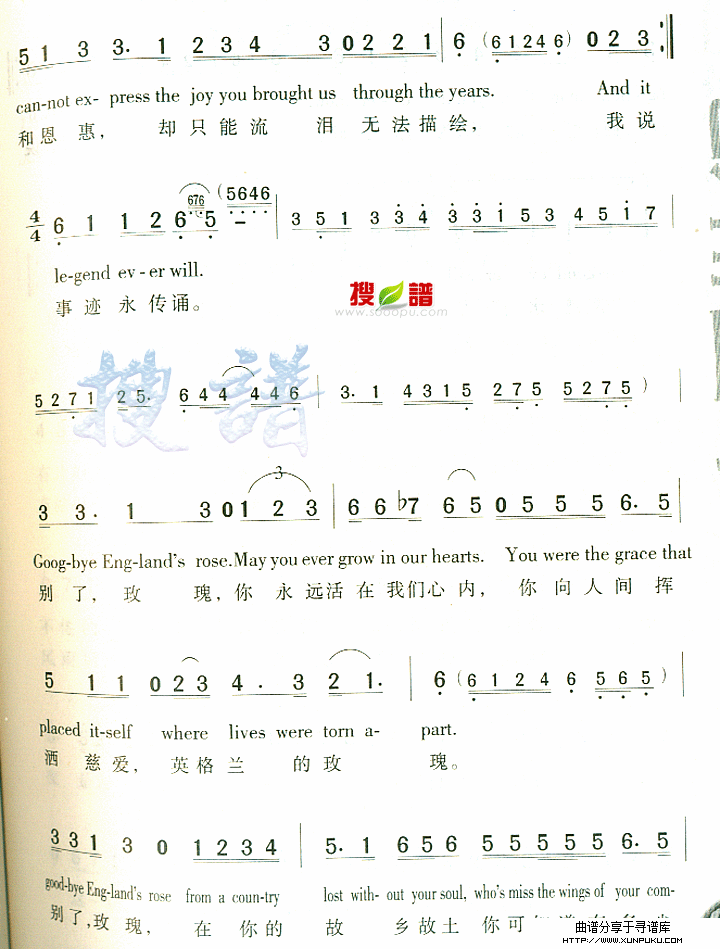 5 1 3 3. 1 2 3 4 3 0 2 2 1 6 (6 1 2 4 6) 0 2 3
can-not ex- press the joy you brought us through the years. And it
和恩 惠, 却只能流 泪 无法描绘, 我说
4/4 6 1 1 2 676 6 5 - (5646 3 5 1 3 3 4 3 3 1 5 3 4 5 1 7
le-gend ev-er will.
事迹永传诵。
搜 谱
www.sooopu.com
搜谱
5 2 7 1 2 5. 6 4 4 4 4 6 3. 1 4 3 1 5 2 7 5 5 2 7 5 )
3
3 3. 1 3 0 1 2 3 6 6 b7 6 5 0 5 5 5 6. 5
Goog-bye Eng-land's rose.May you ever grow in our hearts. You were the grace that
别了, 玫 瑰, 你 永远活在我们心内, 你向人间挥
5 1 1 0 2 3 4. 3 2 1. 6 (6 1 2 4 6 5 6 5)
placed it-self where lives were torn a- part.
洒 慈爱, 英格兰 的玫 瑰。
3 3 1 3 0 1 2 3 4 5. 1 6 5 6 5 5 5 5 5 6. 5
good-bye Eng-land's rose from a coun-try lost with- out your soul, who's miss the wings of your com-
别了,玫瑰, 在你的 故 乡故土 你可
曲谱分享于寻谱库
HTTP://WWW.XUNPUKU.COM